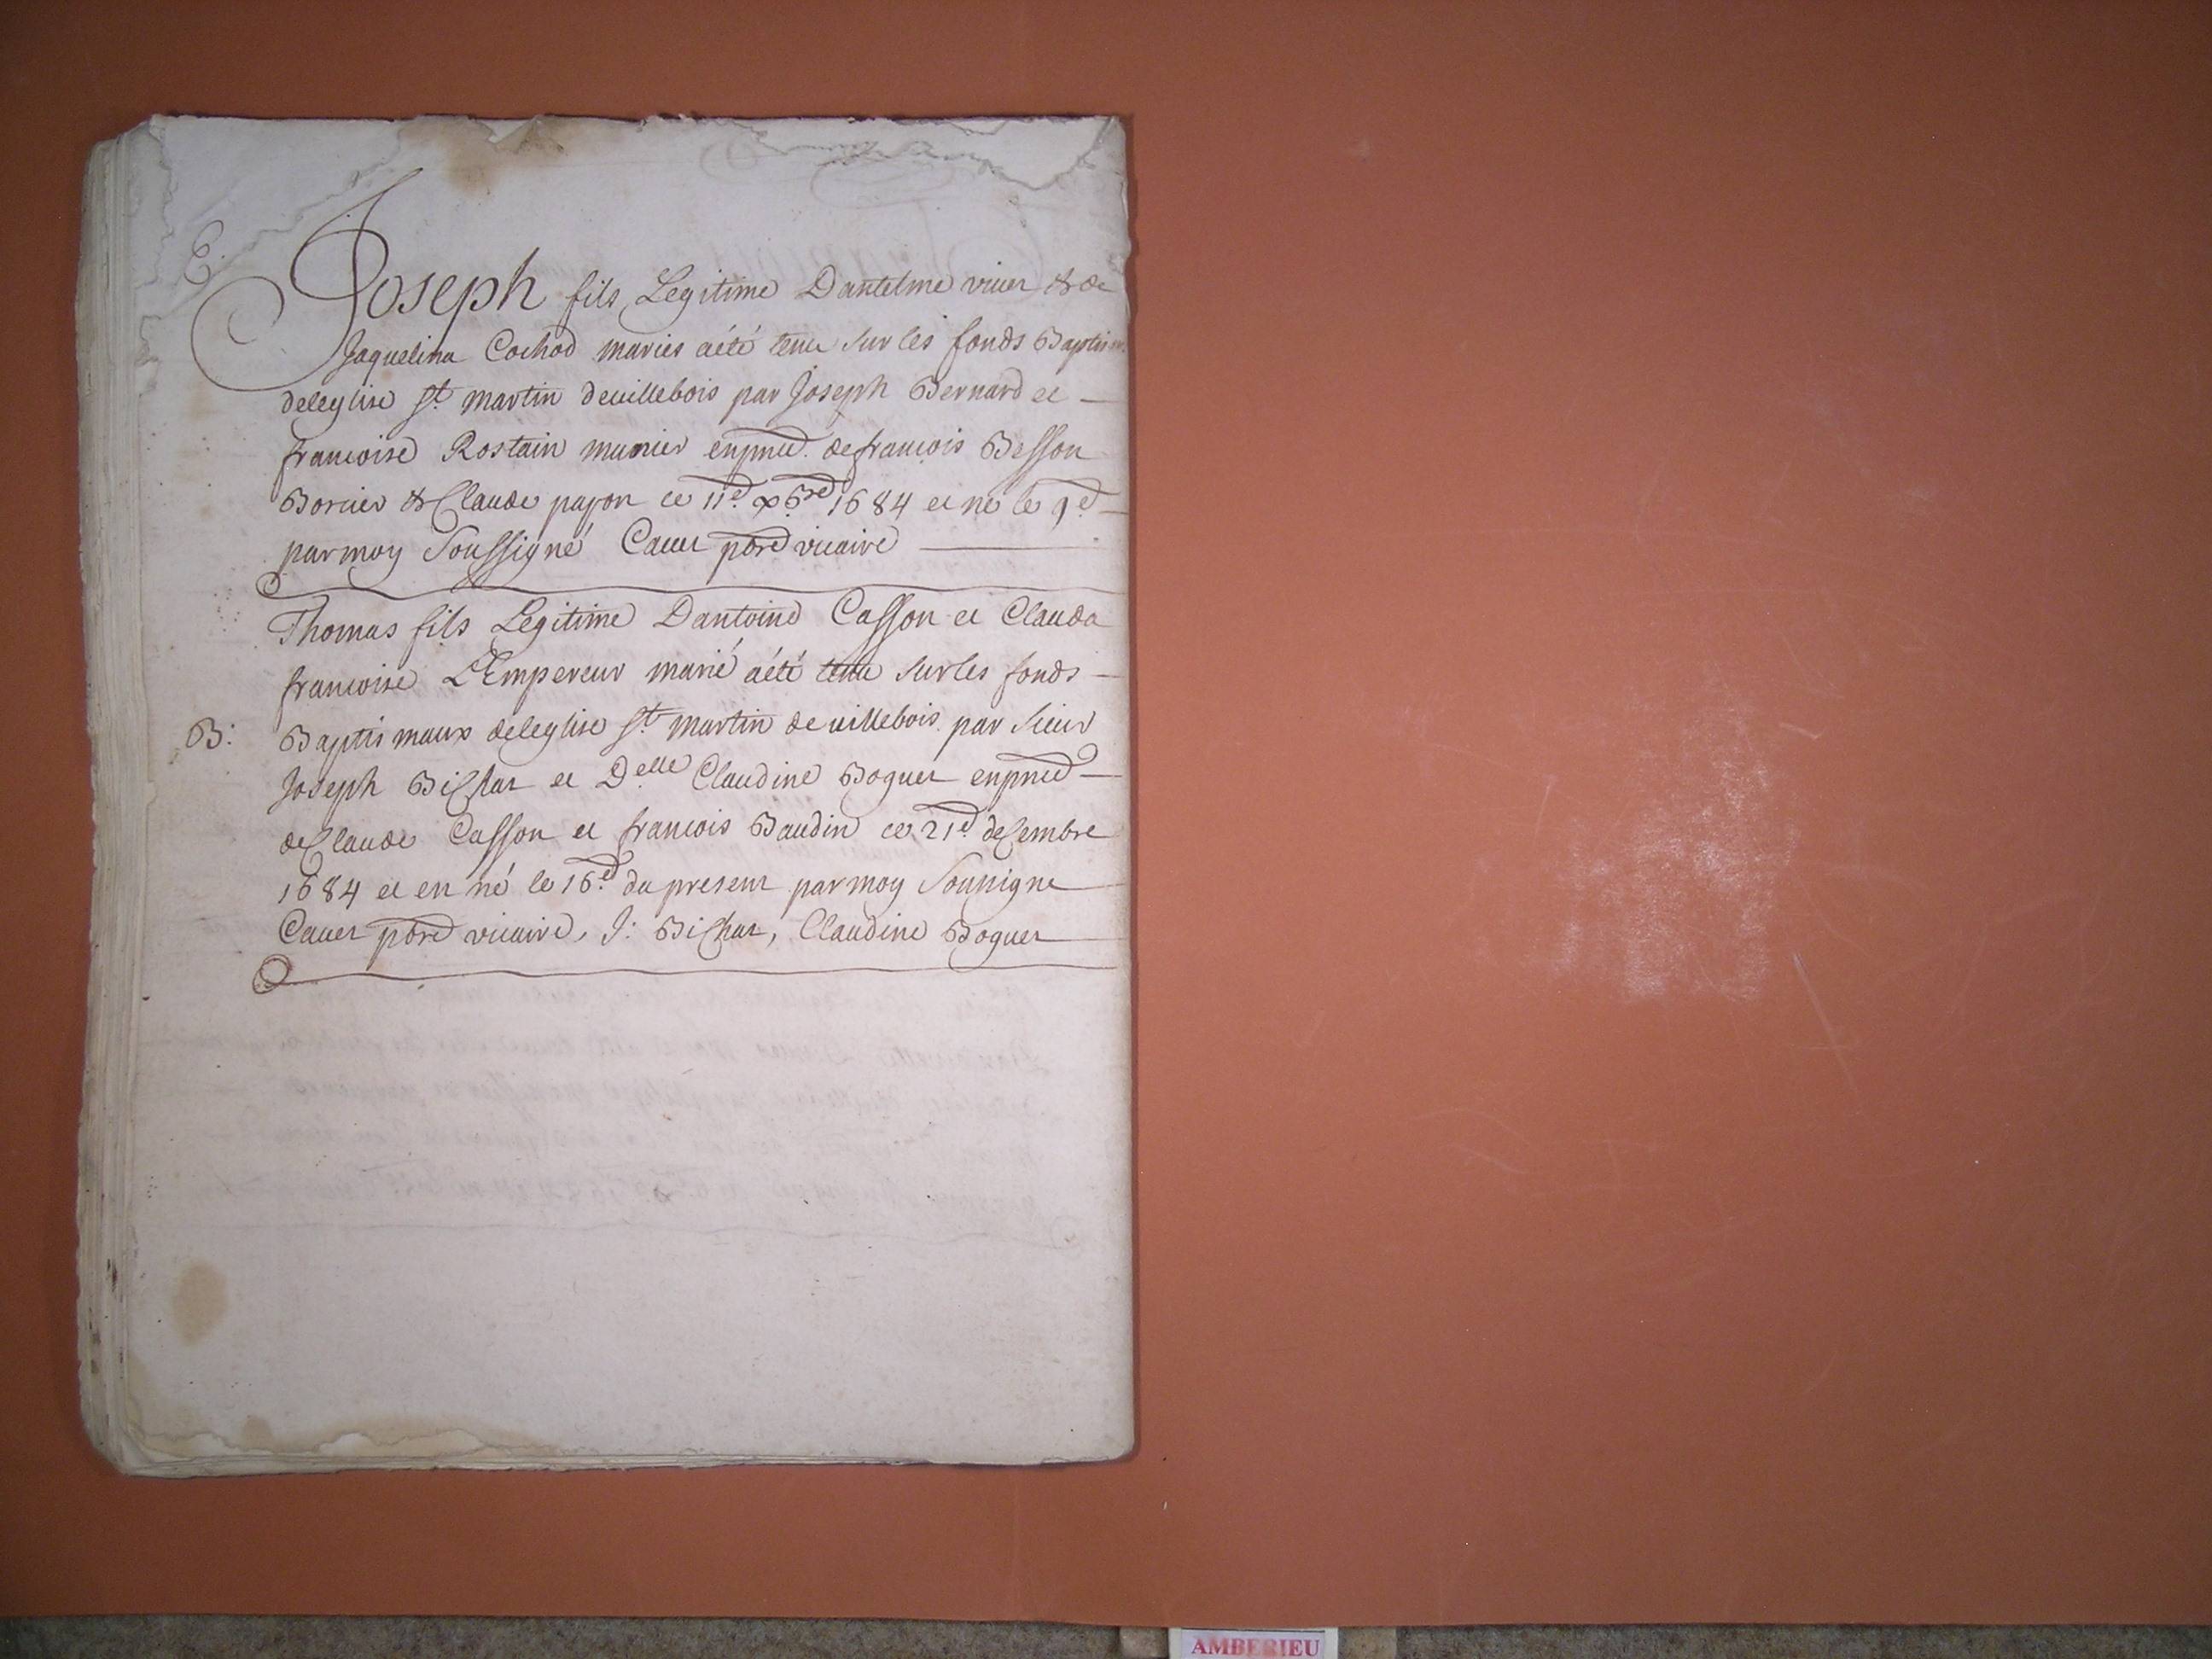 E.
Joseph fils Legitime Dantelme viuer & de
Jaquelina Cochod mariés aété tenu sur les fonds Baptis
deleglise St. martin deuillebois par Joseph Bernard et
francoise Rostain munier enpnce. de francois Besson
Borcier & Claude payon ce 11e. xbre 1684 et né le 9e
par moy Soussigné Cauet pbre vicaire
Thomas fils Legitime Dantoine Casson et Clauda
francoise L'Empereur marié aété tenu sur les fonds
B: Baptismaux deleglise St. martin de uillebois par Sieur
Joseph Bichat et Delle Claudine Boguet enpnce
de Claude Casson et francois Baudin ce 21e decembre
1684 et en né le 16e du present par moy Soussigne
Cauet pbre vicaire, J: Bichat, Claudine Boguet
AMBERIEU